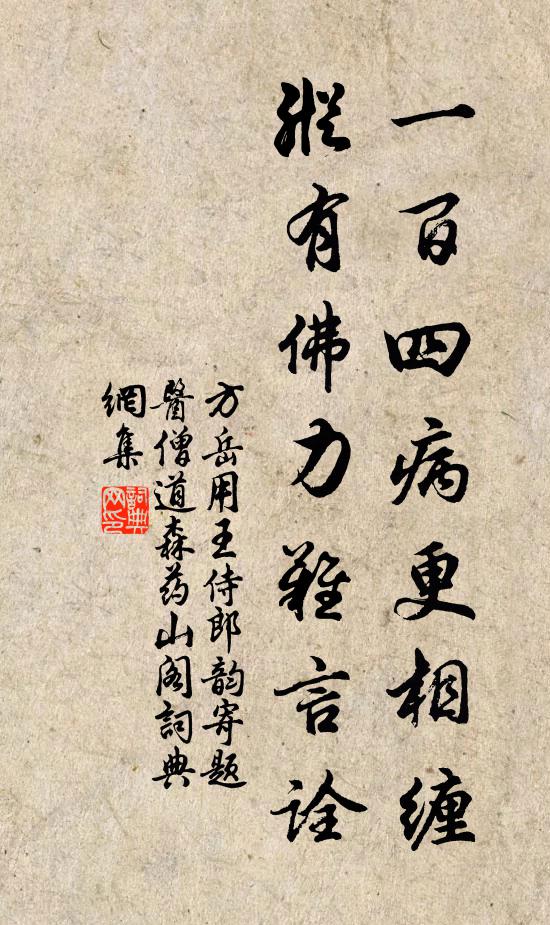 一百四病更相缠
縱有佛力難言詮
方岳用王侍郎韵寄题
醫僧道森药山阁詞典
網集
詞典网印